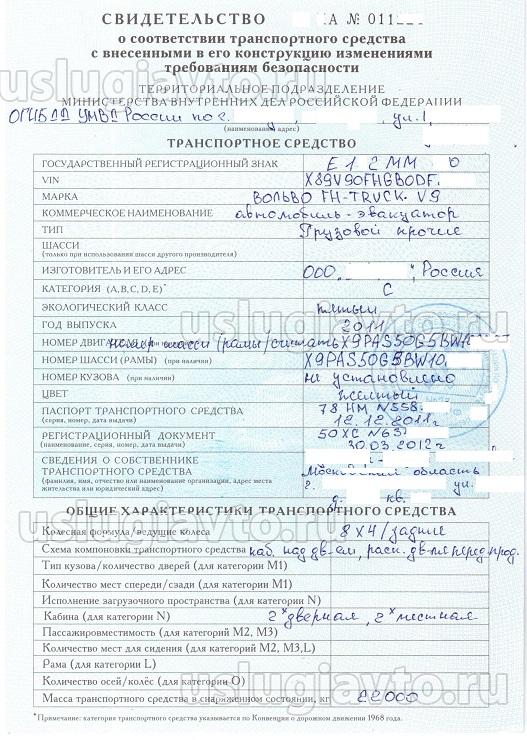 СВИДЕТЕЛЬСТВО КА № 011
о соответствии транспортного средства
с внесенными в его конструкцию изменениями
требованиям безопасности
ТЕРРИТОРИАЛЬНОЕ ПОДРАЗДЕЛЕНИЕ
МИНИСТЕРСТВА ВНУТРЕННИХ ДЕЛ РОССИЙСКОЙ ФЕДЕРАЦИИ
ОГИБДД УМВД России по г. ул.
(наименование, адрес)
ТРАНСПОРТНОЕ СРЕДСТВО
ГОСУДАРСТВЕННЫЙ РЕГИСТРАЦИОННЫЙ ЗНАК Е1 2ММ 0
VIN X89V90FHGB0DF
МАРКА ВОЛЬВО FH-TRUCK V9
КОММЕРЧЕСКОЕ НАИМЕНОВАНИЕ автомобиль-эвакуатор
ТИП Грузовой прочие
ШАССИ
(только при использовании шасси другого производителя)
ИЗГОТОВИТЕЛЬ И ЕГО АДРЕС ООО , Россия
КАТЕГОРИЯ (A,B,C,D,E)* С
ЭКОЛОГИЧЕСКИЙ КЛАСС пятый
ГОД ВЫПУСКА 2011
НОМЕР ДВИГ номер шасси (рамы) считать X9PAS50G5BW1
НОМЕР ШАССИ (РАМЫ) (при наличии) X9PAS50G5BW10
НОМЕР КУЗОВА (при наличии) не установлено
ЦВЕТ желтый
ПАСПОРТ ТРАНСПОРТНОГО СРЕДСТВА 78 НМ N558
(серия, номер, дата выдачи) 12.12.2011г
РЕГИСТРАЦИОННЫЙ ДОКУМЕНТ 50ХС N63
(наименование, серия, номер, дата выдачи) 30.03.2012г
СВЕДЕНИЯ О СОБСТВЕННИКЕ
ТРАНСПОРТНОГО СРЕДСТВА Московская область
(фамилия, имя, отчество или наименование организации, адрес места г. ул.
жительства или юридический адрес) д. кв.
ОБЩИЕ ХАРАКТЕРИСТИКИ ТРАНСПОРТНОГО СРЕДСТВА
Колесная формула/ведущие колеса 8х4/задние
Схема компоновки транспортного средства каб. над дв-ем, расп. дв-ля перед. прод.
Тип кузова/количество дверей (для категории М1)
Количество мест спереди/сзади (для категории М1)
Исполнение загрузочного пространства (для категории N)
Кабина (для категории N) 2х дверная, 2х местная
Пассажировместимость (для категорий М2, М3)
Количество мест для сидения (для категорий М2, М3,L)
Рама (для категории L)
Количество осей/колёс (для категории О)
Масса транспортного средства в снаряженном состоянии, кг 22000
*Примечание: категория транспортного средства указывается по Конвенции о дорожном движении 1968 года.
uslugiavto.ru
uslugiavto.ru
uslugiavto.ru
uslugiavto.ru